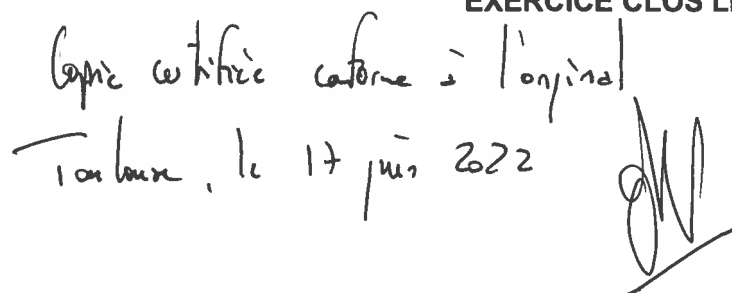 EXERCICE CLOS L
Copie certifiée conforme à l'original
Toulouse, le 17 juin 2022